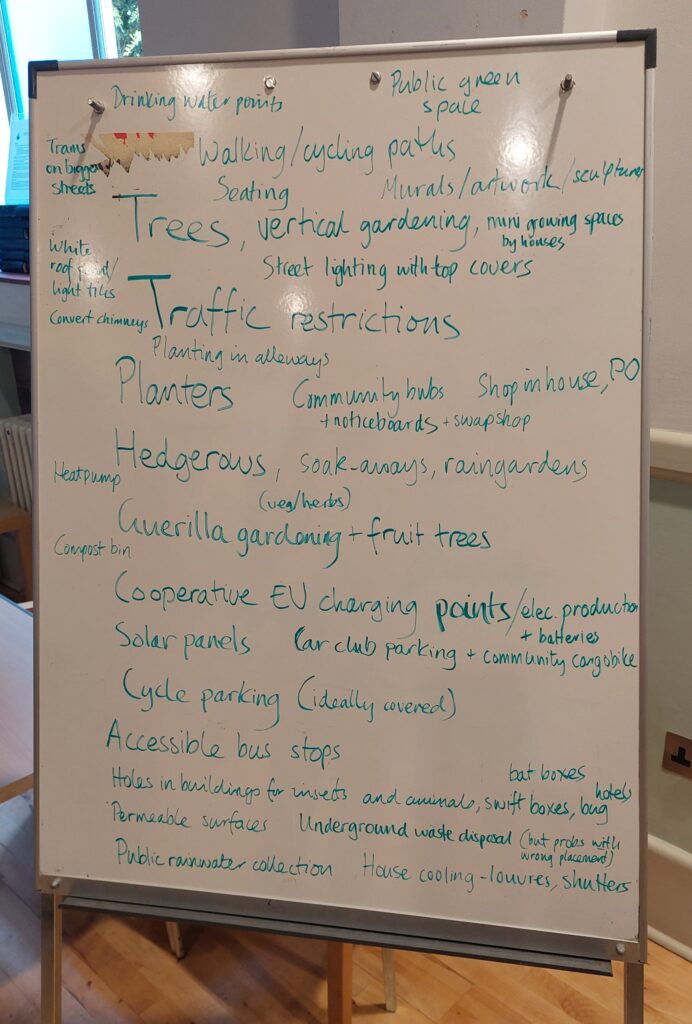 Drinking water points
Public green
space
Trams
on bigger
streets
Walking/cycling paths
Seating
Murals/artwork/sculptures
Trees, vertical gardening, mini growing spaces
by houses
White
roof paint/
light tiles
Street lighting with top covers
Convert chimneys
Traffic restrictions
Planting in alleyways
Planters
Community hubs
+ noticeboards + swapshop
Shop in house, PO
Hedgerows, soak-aways, raingardens
Heatpump
(veg/herbs)
Guerilla gardening + fruit trees
Compost bin
Cooperative EU charging points/elec. production
+ batteries
Solar panels
Car club parking + community cargobike
Cycle parking (ideally covered)
Accessible bus stops
bat boxes
Holes in buildings for insects and animals, swift boxes, bug hotels
Permeable surfaces
Underground waste disposal (but probs with
wrong placement)
Public rainwater collection
House cooling - louvres, shutters